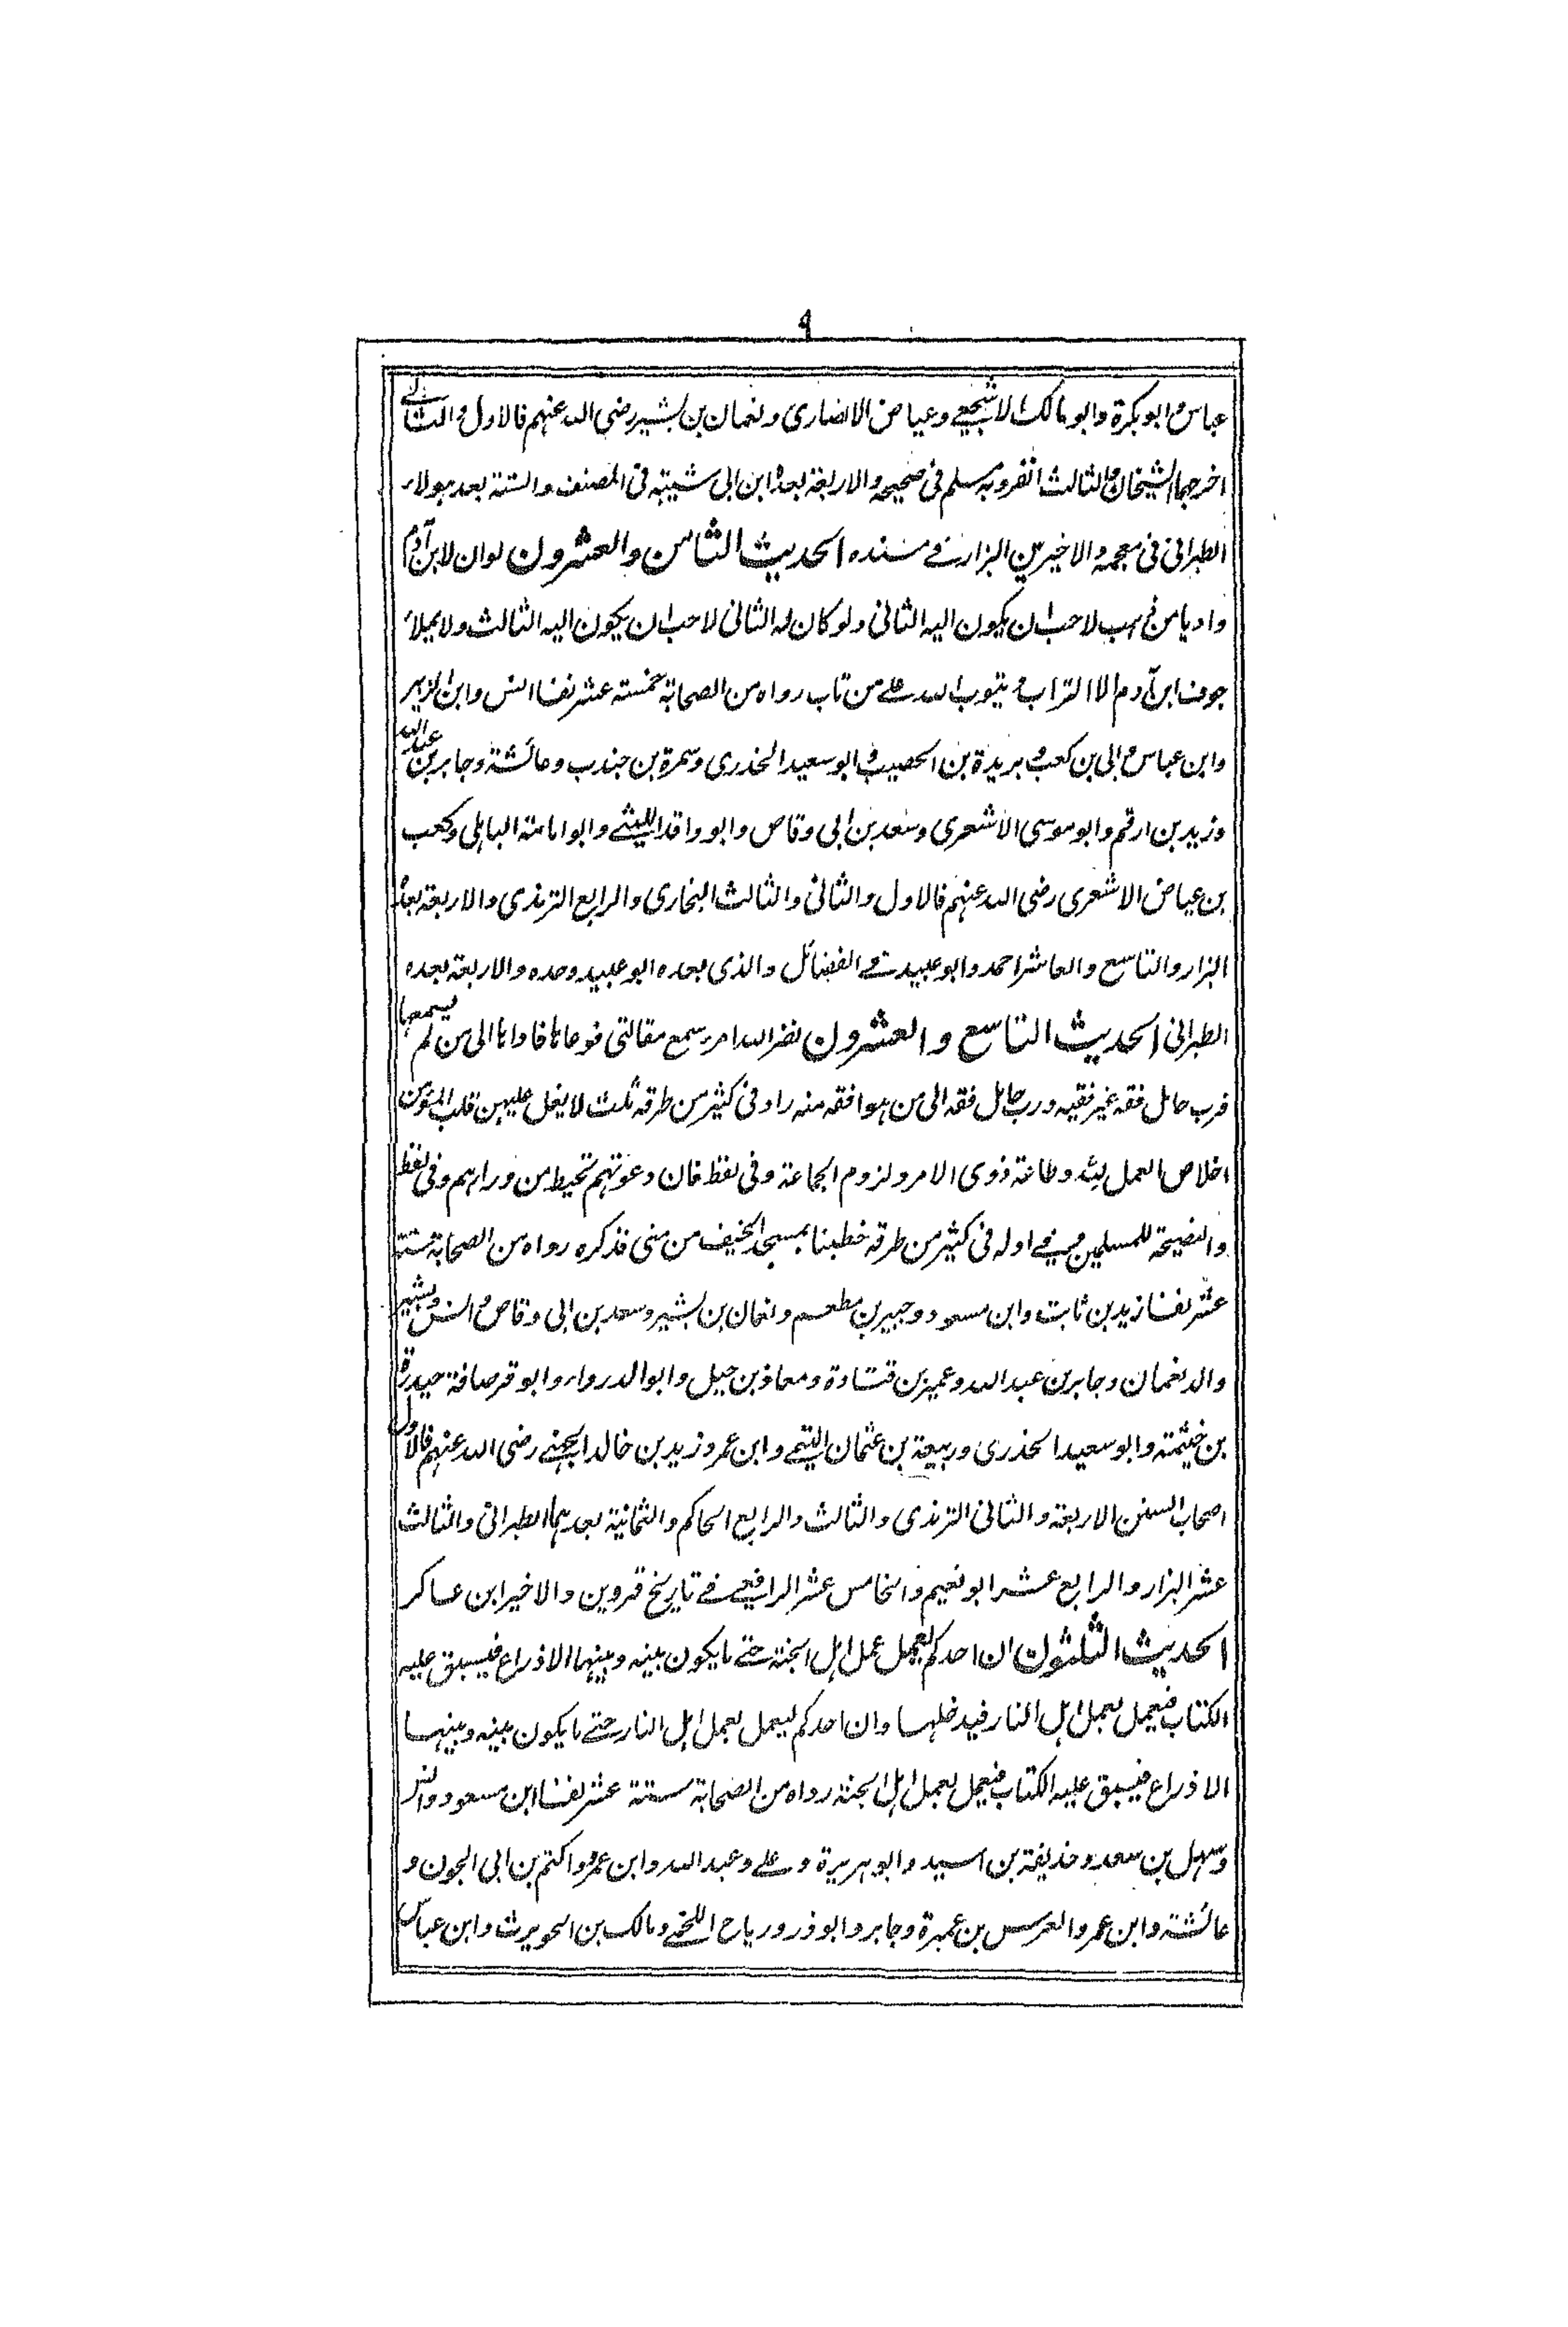 ٩
عباس و ابو بكرة و ابو مالك الاشجعي و عياض الانصاري و نعمان بن بشير رضي الله عنهم فالاول و الثاني
اخرجهما الشيخان و الثالث انفرد به مسلم في صحيحه و الاربعة بعده ابن ابي شيبة في المصنف و الستة بعد هولاء
الطبراني في معجمه و الاخيرين البزار في مسنده الحديث الثامن والعشرون لو ان لابن آدم
واديا من ذهب لاحب ان يكون اليه الثاني ولو كان له الثاني لاحب ان يكون اليه الثالث ولا يملأ
جوف ابن آدم الا التراب و يتوب الله على من تاب رواه من الصحابة خمسة عشر نفسا انس وابن الزبير
وابن عباس و ابي بن كعب و بريدة بن الحصيب و ابو سعيد الخدري وسمرة بن جندب و عائشة و جابر بن عبد الله
و زيد بن ارقم و ابو موسى الاشعري و سعد بن ابي وقاص و ابو واقد الليثي و ابو امامة الباهلي و كعب
بن عياض الاشعري رضي الله عنهم فالاول والثاني والثالث البخاري والرابع الترمذي والاربعة بعده
البزار والتاسع والعاشر احمد وابو عبيد في الفضائل والذي بعده ابو عبيد وحده والاربعة بعده
الطبراني الحديث التاسع والعشرون نضر الله امرء سمع مقالتي فوعاها فاداها الى من لم يسمعها
فرب حامل فقه غير فقيه ورب حامل فقه الى من هو افقه منه زاد في كثير من طرقه ثلث لا يغل عليهن قلب المؤمن
اخلاص العمل لله وطاعة ذوى الامر ولزوم الجماعة وفي لفظ فان دعوتهم تحيط من ورائهم وفي لفظ
والنصيحة للمسلمين و في اوله في كثير من طرقه خطبنا بمسجد الخيف من منى فذكره رواه من الصحابة ستة
عشر نفسا زيد بن ثابت وابن مسعود و جبير بن مطعم و نعمان بن بشير و سعد بن ابي وقاص و انس و بشير
والد نعمان و جابر بن عبد الله و عمير بن قتادة و معاذ بن جبل و ابو الدرداء و ابو قرصافة حيدرة
بن خيثمة و ابو سعيد الخدري و ربيعة بن عثمان التيمي و ابن عمر و زيد بن خالد الجهني رضي الله عنهم فالاول
اصحاب السنن الاربعة والثاني الترمذي والثالث والرابع الحاكم والثمانية بعدهما الطبراني والثالث
عشر البزار والرابع عشر ابو نعيم والخامس عشر الرافعي في تاريخ قزوين والاخير ابن عساكر
الحديث الثلثون ان احدكم ليعمل عمل اهل الجنة حتى ما يكون بينه وبينها الا ذراع فيسبق عليه
الكتاب فيعمل بعمل اهل النار فيدخلها وان احدكم ليعمل بعمل اهل النار حتى ما يكون بينه وبينها
الا ذراع فيسبق عليه الكتاب فيعمل بعمل اهل الجنة رواه من الصحابة ستة عشر نفسا ابن مسعود و انس
و سهل بن سعد و حذيفة بن اسيد و ابو هريرة و على و عبد الله و ابن عمرو و اكثم بن ابي الجون و
عائشة و ابن عمر و العرس بن عميرة و جابر و ابو ذر و رباح اللخمي و مالك بن الحويرث و ابن عباس